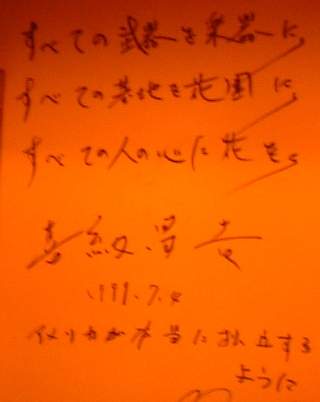 すべての武器を楽器に、
すべての基地を花園に、
すべての人の心に花を。
喜納昌吉
1999.7.4
アメリカが本当に独立する
ように